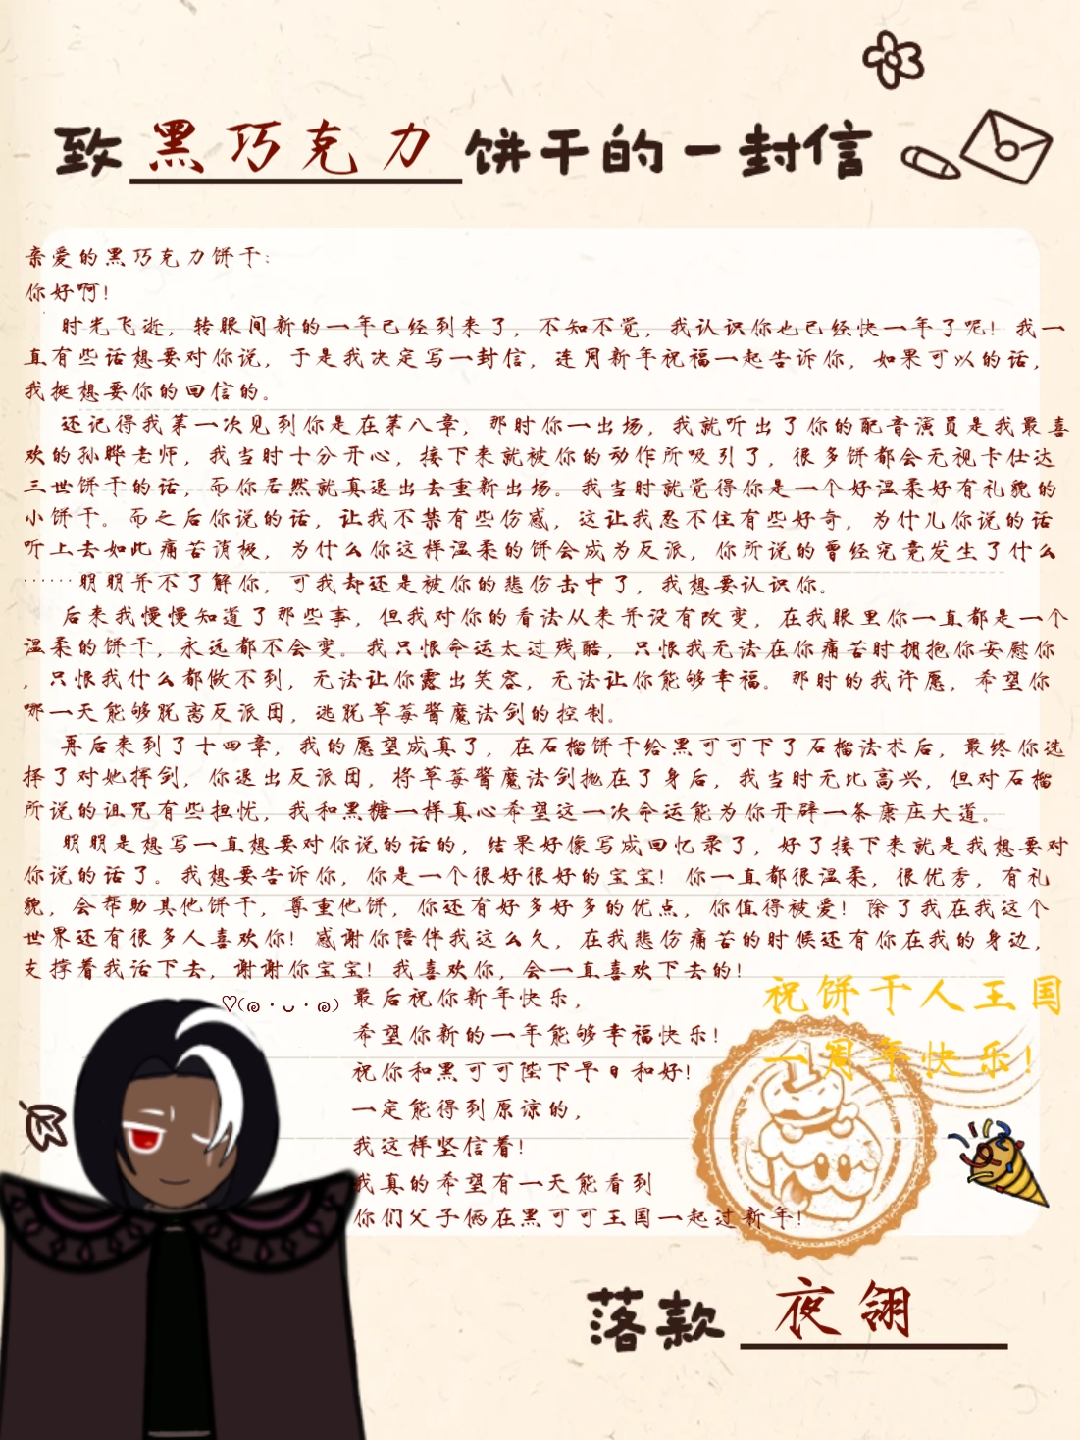 致黑巧克力饼干的一封信
亲爱的黑巧克力饼干:
你好啊!
时光飞逝,转眼间新的一年已经到来了,不知不觉,我认识你也已经快一年了呢!我一
直有些话想要对你说,于是我决定写一封信,连同新年祝福一起告诉你,如果可以的话,
我挺想要你的回信的。
还记得我第一次见到你是在第八章,那时你一出场,我就听出了你的配音演员是我最喜
欢的孙晔老师,我当时十分开心,接下来就被你的动作所吸引了,很多饼都会无视卡仕达
三世饼干的话,而你居然就真退出去重新出场。我当时就觉得你是一个好温柔好有礼貌的
小饼干。而之后你说的话,让我不禁有些伤感,这让我忍不住有些好奇,为什儿你说的话
听上去如此痛苦消极,为什么你这样温柔的饼会成为反派,你所说的曾经究竟发生了什么
······明明并不了解你,可我却还是被你的悲伤击中了,我想要认识你。
后来我慢慢知道了那些事,但我对你的看法从来并没有改变,在我眼里你一直都是一个
温柔的饼干,永远都不会变。我只恨命运太过残酷,只恨我无法在你痛苦时拥抱你安慰你
,只恨我什么都做不到,无法让你露出笑容,无法让你能够幸福。那时的我许愿,希望你
哪一天能够脱离反派团,逃脱草莓酱魔法剑的控制。
再后来到了十四章,我的愿望成真了,在石榴饼干给黑可可下了石榴法术后,最终你选
择了对她挥剑,你退出反派团,将草莓酱魔法剑抛在了身后,我当时无比高兴,但对石榴
所说的诅咒有些担忧,我和黑糖一样真心希望这一次命运能为你开辟一条康庄大道。
明明是想写一直想要对你说的话的,结果好像写成回忆录了,好了接下来就是我想要对
你说的话了。我想要告诉你,你是一个很好很好的宝宝!你一直都很温柔,很优秀,有礼
貌,会帮助其他饼干,尊重他饼,你还有好多好多的优点,你值得被爱!除了我在我这个
世界还有很多人喜欢你!感谢你陪伴我这么久,在我悲伤痛苦的时候还有你在我的身边,
支撑着我活下去,谢谢你宝宝!我喜欢你,会一直喜欢下去的!
♡(๑・ᴗ・๑)最后祝你新年快乐,
希望你新的一年能够幸福快乐!
祝你和黑可可陛下早日和好!
一定能得到原谅的,
我这样坚信着!
我真的希望有一天能看到
你们父子俩在黑可可王国一起过新年!
祝饼干人王国
一周年快乐!
落款 夜翎